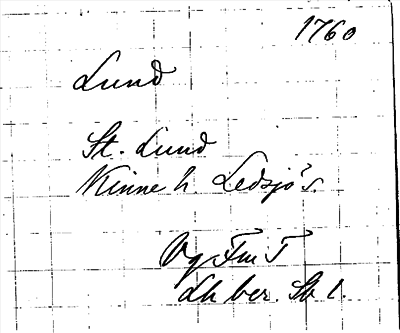 1760
Lund
St. Lund
Kinne h. Ledsjö s.
Vg Fm T
Lh ber. Sk 1.